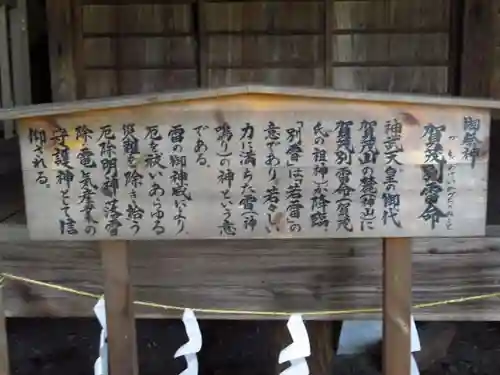 御祭神
賀茂別雷命
かもわけいかづちのみこと
神武天皇の御代
賀茂山の麓(神山)に
賀茂別雷命(賀茂
氏の祖神)が降臨
「別雷」は"若雷"の
意であり若々しい
力に満ちた雷(神
鳴り)の神という意
である。
雷の御神威により、
厄を祓いあらゆる
災難を除き給う
厄除明神・落雷
除・電気産業の
守護神として信
仰される。